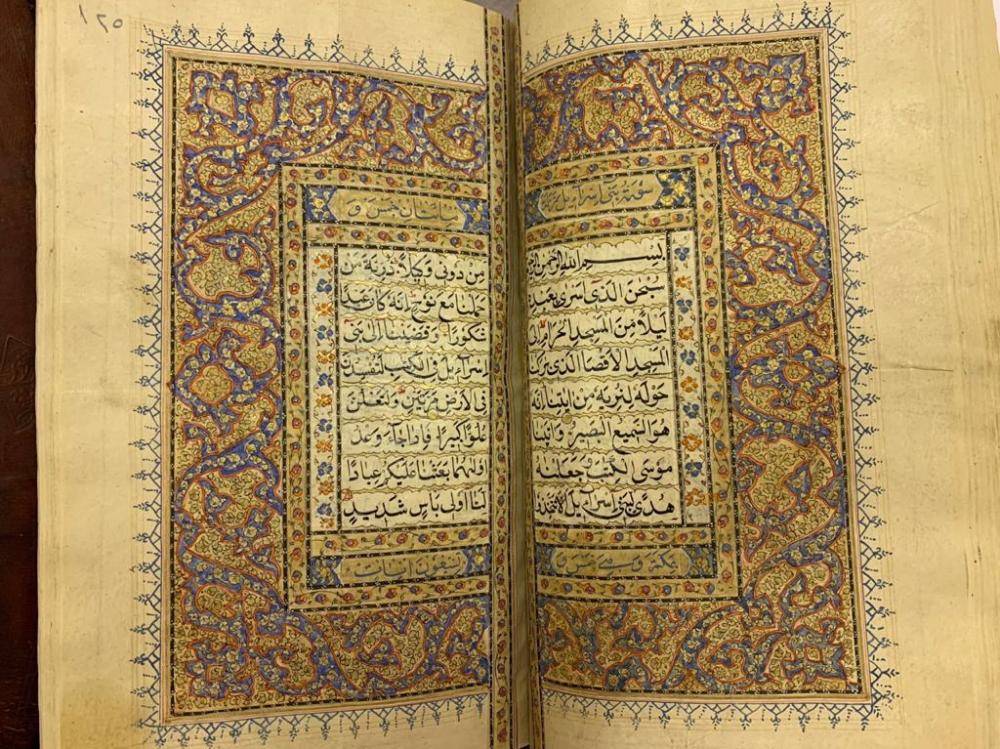 ١٢٥
سورة بني اسرآئيل
بسم الله الرحمن الرحيم
سُبْحٰنَ الَّذِي اَسْرى بِعَبْدِهِ
لَيْلًا مِنَ الْمَسْجِدِ الْحَرَامِ اِلَى
الْمَسْجِدِ الْاَقْصَا الَّذِي بٰرَكْنَا
حَوْلَهُ لِنُرِيَهُ مِنْ ايٰتِنَا اِنَّهُ
هُوَ السَّمِيعُ الْبَصِيرُ وَاتَيْنَا
مُوسَى الْكِتٰبَ وَجَعَلْنَاهُ
هُدًى لِبَنِي اِسْرآءِيلَ اَلَّا تَتَّخِذُوا
مِنْ دُونِي وَكِيلًا ذُرِّيَّةَ مَنْ
حَمَلْنَا مَعَ نُوحٍ اِنَّهُ كَانَ عَبْدًا
شَكُورًا وَقَضَيْنَا اِلى بَنِي
اِسْرآءِيلَ فِي الْكِتٰبِ لَتُفْسِدُنَّ
فِي الْاَرْضِ مَرَّتَيْنِ وَلَتَعْلُنَّ
عُلُوًّا كَبِيرًا فَاِذَا جَآءَ وَعْدُ
اُولٰيهُمَا بَعَثْنَا عَلَيْكُمْ عِبَادًا
لَنَا اُولِي بَاْسٍ شَدِيدٍ